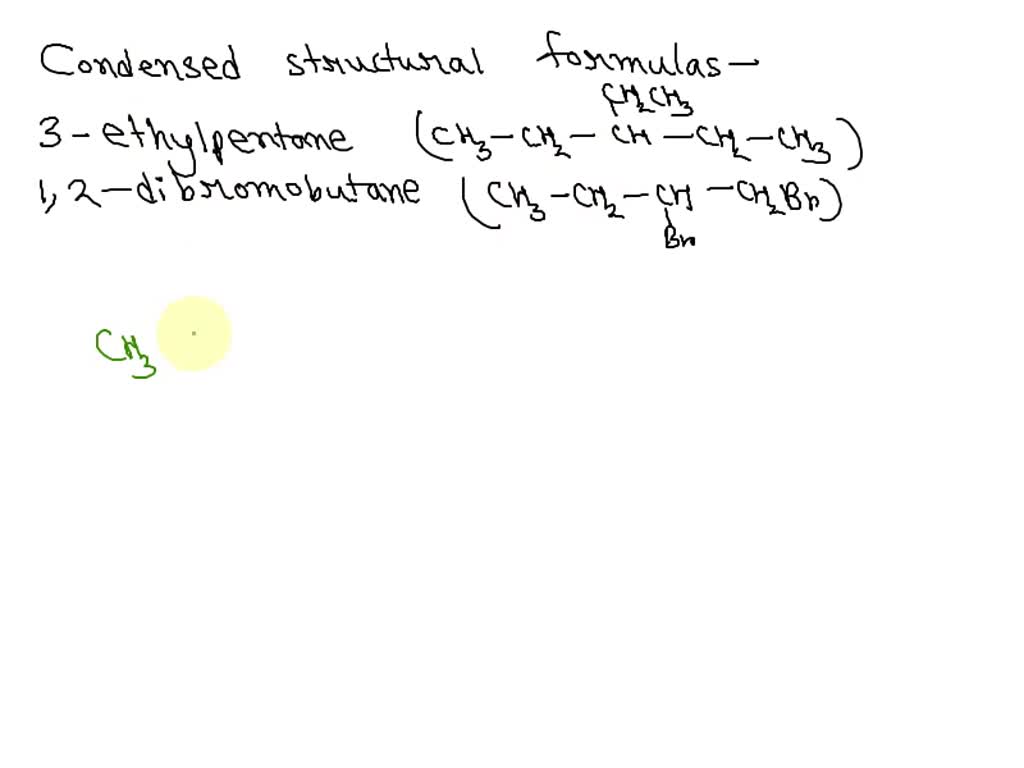 Condensed structural formulas—
CH₂CH₃
3-ethylpentane (CH₃-CH₂-CH-CH₂-CH₃)
1,2-dibromobutane (CH₃-CH₂-CH-CH₂Br)
Br
CH₃